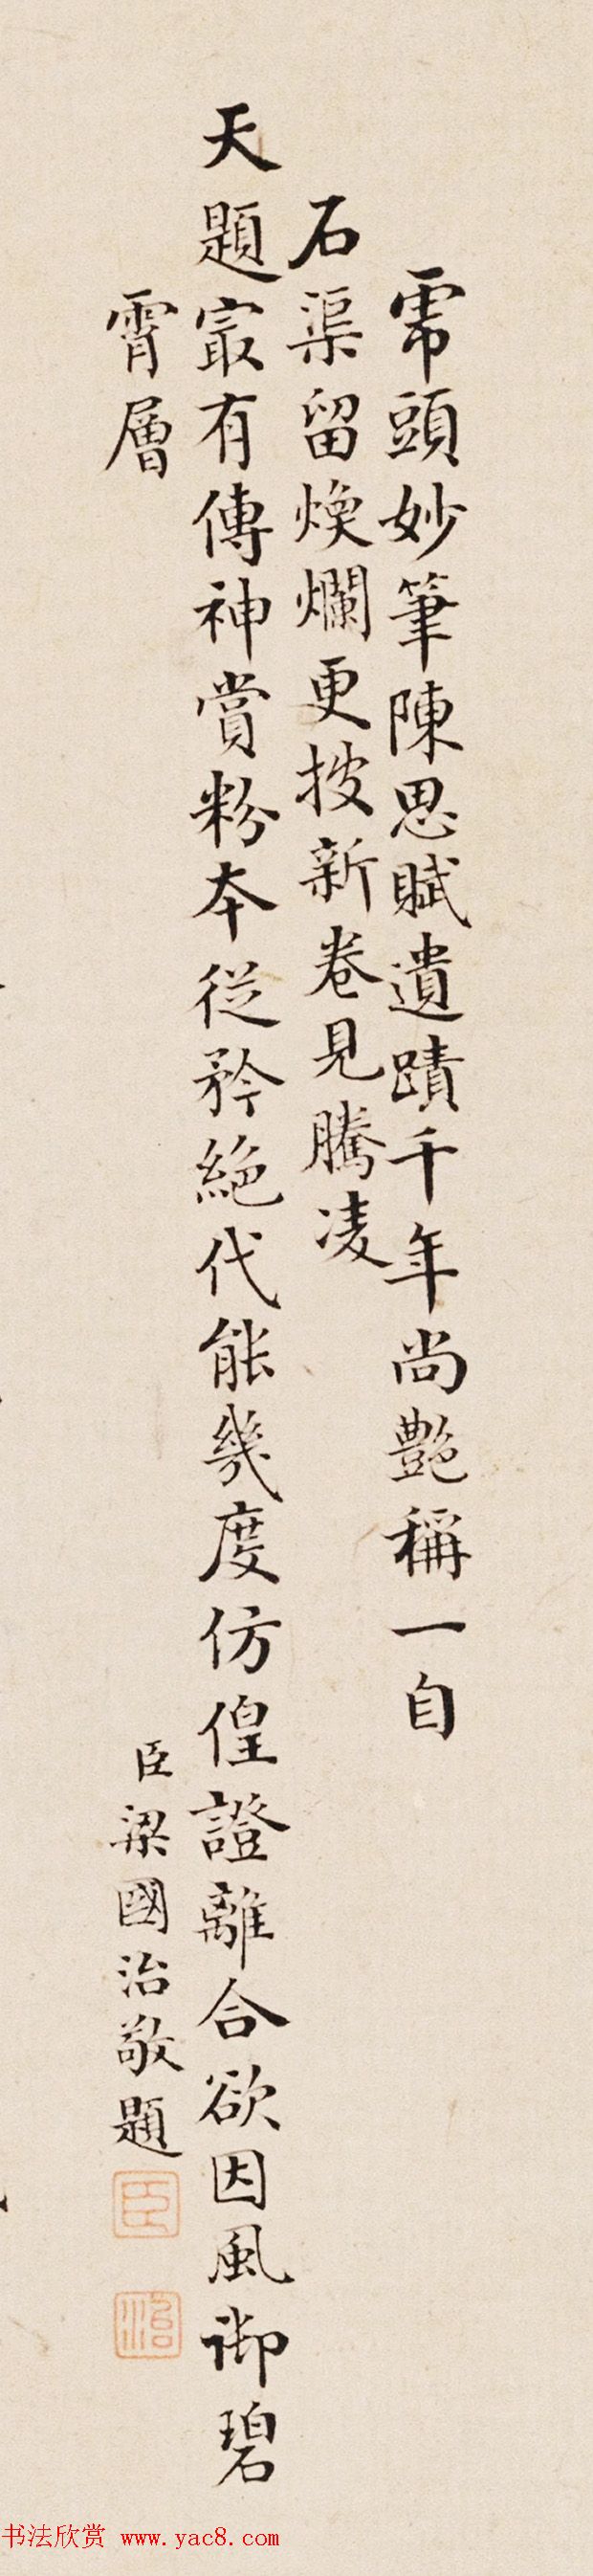 乕頭妙筆陳思賦遺蹟千年尚艶稱一自
石渠留煥爛更披新卷見騰凌
天題㝡有傳神賞粉本從矜絕代能幾度仿偟證離合欲因風御碧
霄層
臣梁國治敬題
臣
治
书法欣赏 www.yac8.com